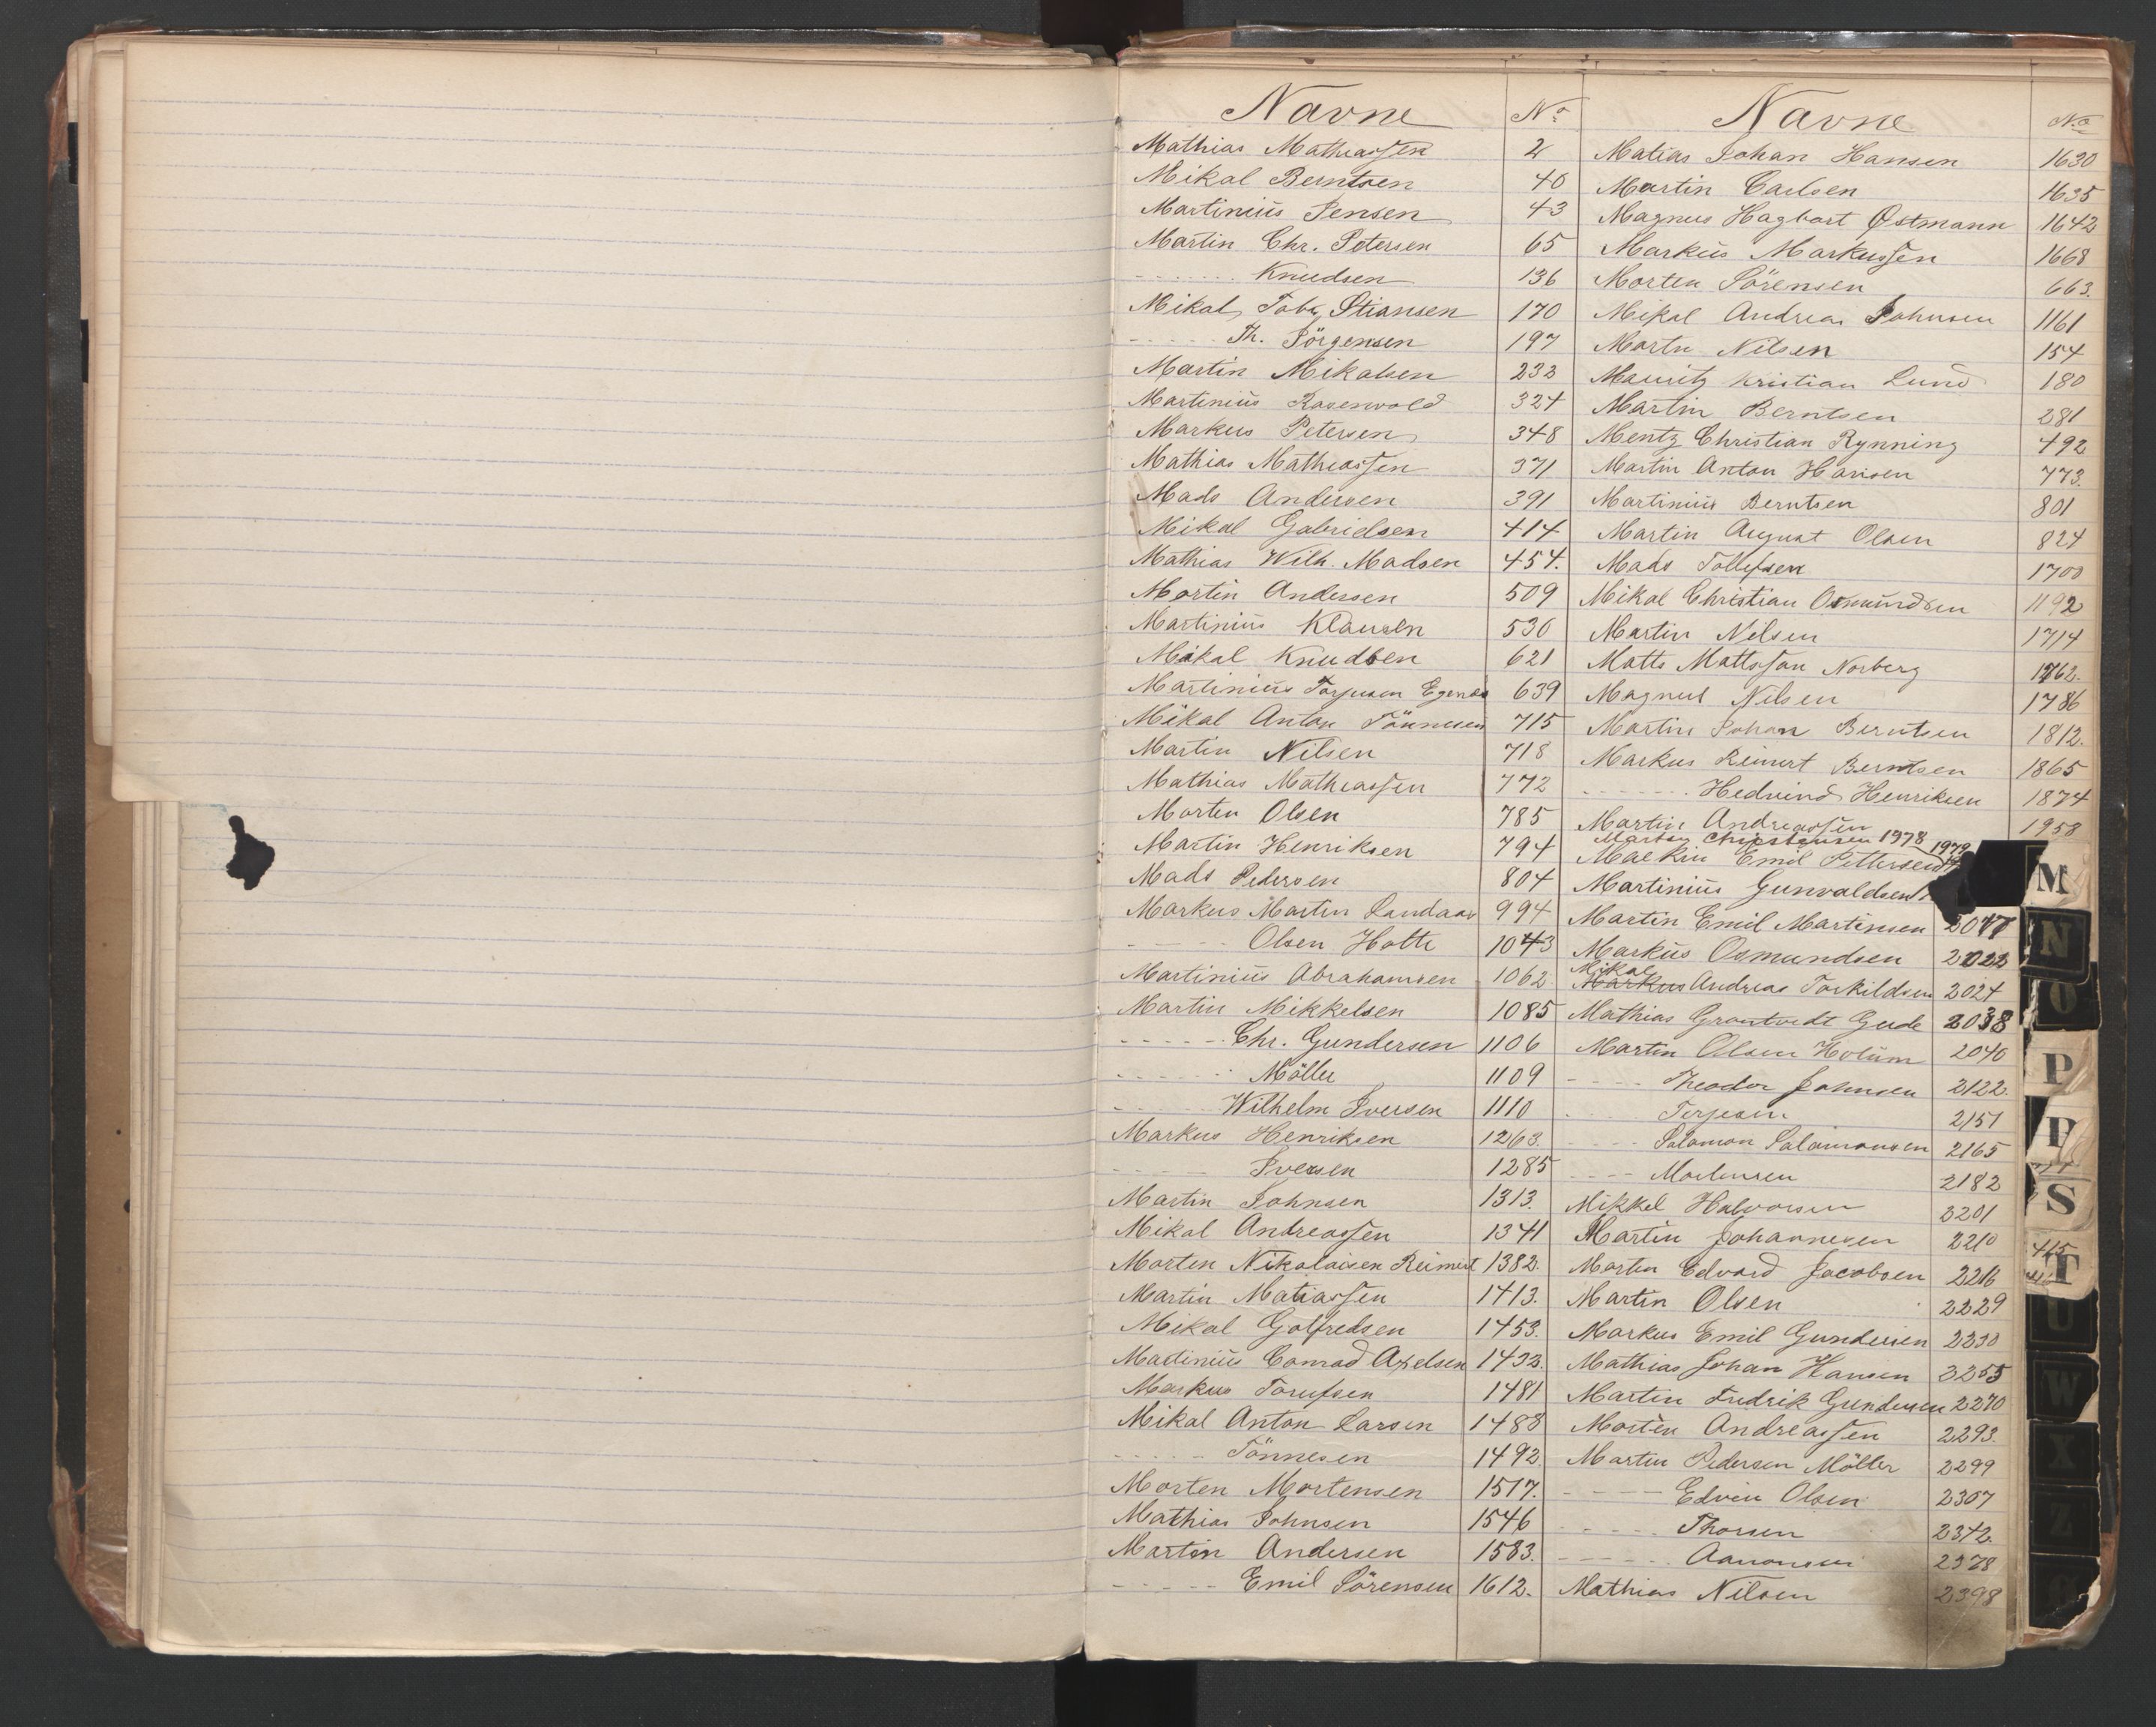 Navne No
Mathias Mathiassen 2
Mikal Berntsen 40
Martinius Jensen 43
Martin Chr. Petersen 65
------- Knudsen 136
Mikal Tobr. Stiansen 170
----- Th. Jörgensen 197
Martin Mikalsen 233
Martinius Rosenvold 324
Markus Petersen 348
Mathias Mathiassen 371
Mads Andersen 391
Mikal Gabrielsen 414
Mathias Wilh. Madsen 454.
Martin Andersen 509
Martinius Klausen 530
Mikal Knudsen 621
Martinius Torjusen Egenes 639
Mikal Anton Tönnesen 715
Martin Nilsen 718
Mathias Mathiassen 772
Morten Olsen 785
Martin Henriksen 794
Mads Pedersen 804
Markus Martin Landaas 994
----- Olsen Hotte 1043
Martinius Abrahamsen 1062
Martin Mikkelsen 1085
----- Chr. Gundersen 1106
------ Möller 1109
----- Wilhelm Iversen 1110
Markus Henriksen 1263.
------ Iversen 1285
Martin Johnsen 1313.
Mikal Andreassen 1341
Morten Nikolaisen Reimert 1382.
Martin Matiassen 1413.
Mikal Golfredsen 1453.
Martinius Conrad Axelsen 1432.
Markus Torufsen 1481
Mikal Anton Larsen 1483
----- Tönnesen 1492.
Morten Mortensen 1517.
Mathias Johnsen 1546
Martin Andersen 1583.
----- Emil Sörensen 1612.
Navne No
Matias Johan Hansen 1630
Martin Carlsen 1635
Magnus Hagbart Østmann 1642
Markus Markussen 1668
Morten Sörensen 663.
Mikal Andreas Johnsen 1161
Martin Nilsen 154
Mauritz Kristian Lund 180
Martin Berntsen 281
Mentz Christian Rynning 492
Martin Anton Hansen 773.
Martinius Berntsen 801
Martin August Olsen 824
Mads Tollefsen 1700
Mikal Christian Osmundsen 1192
Martin Nelsen 1714
Matts Mattsson Norberg 1762.
Magnus Nilsen 1786
Martin Johan Berntsen 1812.
Markus Reinert Berntsen 1865
------- Hedvind Henriksen 1874
Martin Andreassen 1958
Martin Christensen 1978
Markin Emil Pettersen 1979
Martinius Gunvaldsen
Martin Emil Martinsen 2017
Markus Osmundsen 2022
Mikal
Markus Andreas Torkildsen 2024
Mathias Grontvedt Gude 2038
Martin Olsen Holum 2040
---- Theodor Johnsen 2122.
---- Terjesen 2151
---- Salamon Salamonsen 2165
---- Martinsen 2182
Mikkel Halvorsen 2201
Martin Johannesen 2210
Martin Edvard Jacobsen 2216
Martin Olsen 2229
Markus Emil Gundersen 2230
Mathias Johan Hansen 2255
Martin Fredrik Gundersen 2270
Morten Andreassen 2293.
Martin Pedersen Möller 2299
----- Edvin Olsen 2307
----- Thorsen 2342.
------ Aanonsen 2378
Mathias Nilsen 2398
M
N
O
P
S
T
U
W
X
Z